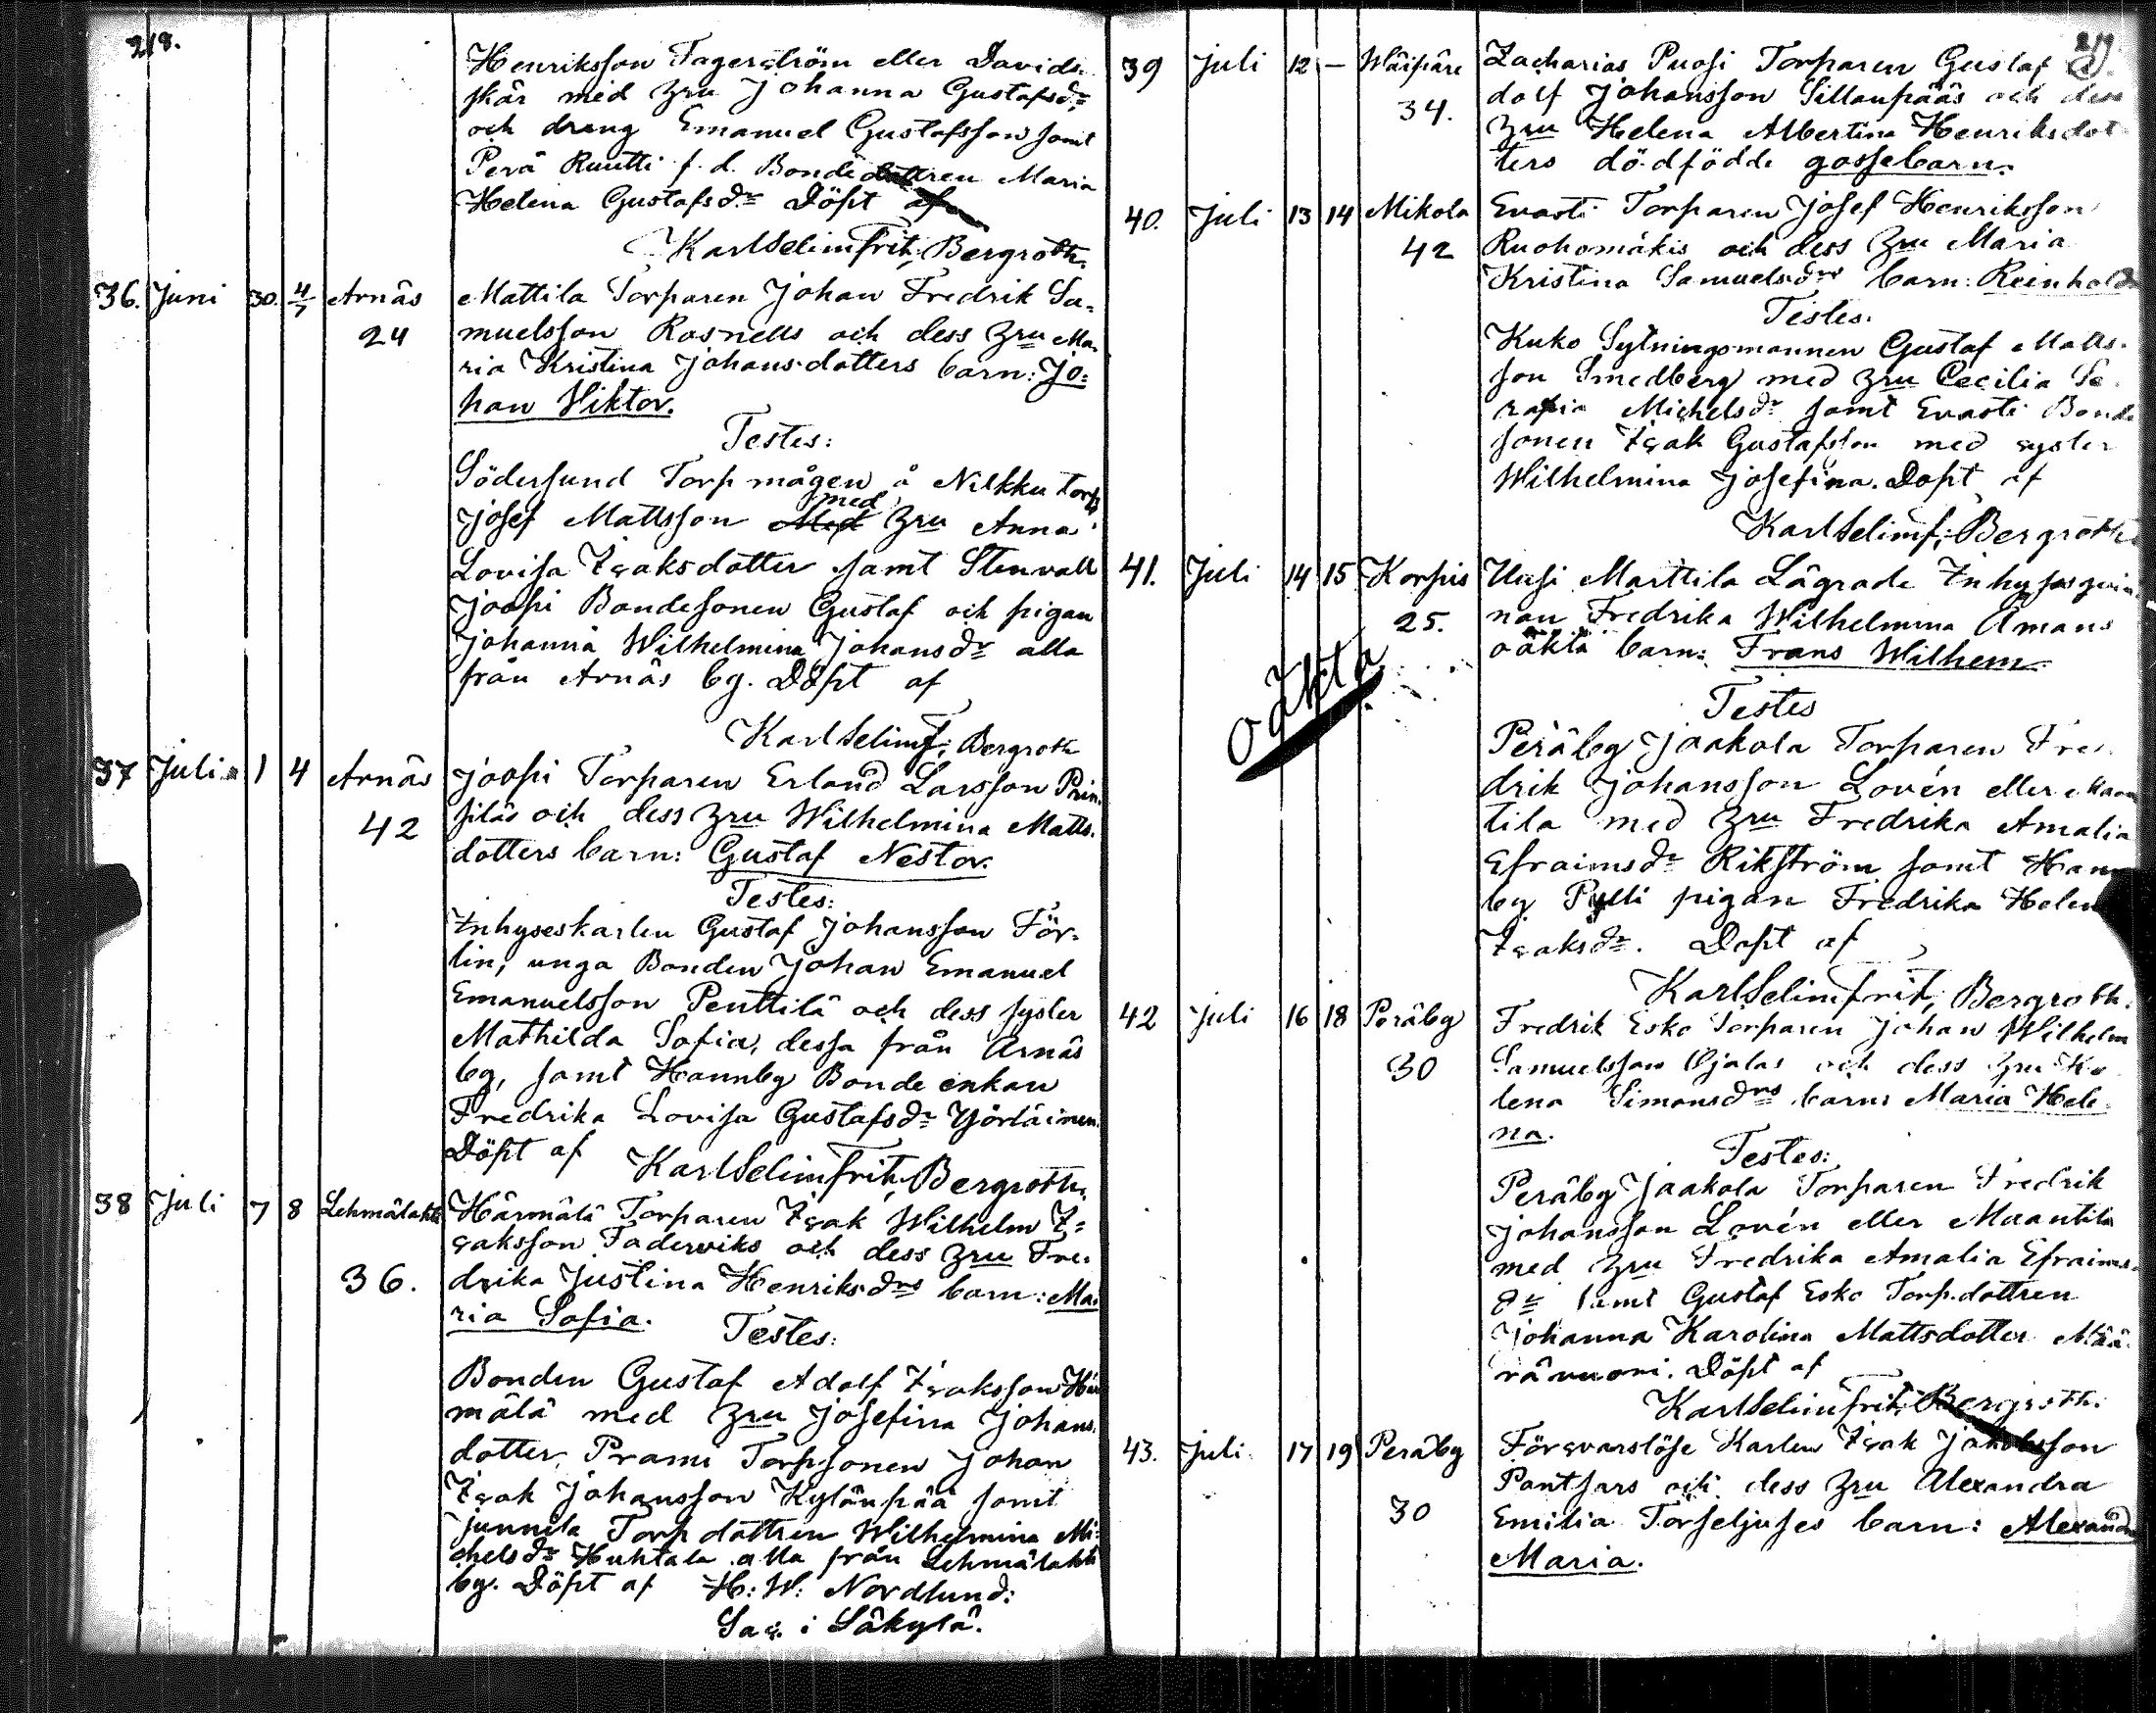 218.
Henriksson Fagerström eller Davids-
skär med Hru Johanna Gustafsdr
och dreng Emanuel Gustafsson samt
Perä Ruutti f. d. Bonde dottren Maria
Helena Gustafsdr Döpt af
Karl Selim Frit; Bergroth.
36. Juni 30. 4/7 Arnäs Mattila Torparen Johan Fredrik Sa-
24 muelsson Rosnells och dess Hru Ma-
ria Kristina Johansdotters barn: Jo-
han Viktor.
Testes:
Södersund Torpmågen å Nikku torp
Josef Mattsson med Hru Anna
Lovisa Isaksdotter samt Stenvall
Joopi Bondesonen Gustaf och pigan
Johanna Wilhelmina Johansdr alla
från Arnäs by. Döpt af
Karl Selim F; Bergroth
37 Juli 1 4 Arnäs Joopi Torparen Erland Larsson Prin-
42 siläs och dess Hru Wilhelmina Matts-
dotters barn: Gustaf Nestor.
Testes:
Inhyseskarlen Gustaf Johansson För-
lin, unga Bonden Johan Emanuel
Emanuelsson Penttilä och dess syster
Mathilda Sofia, dessa från Arnäs
by, samt Hannby Bonde enkan
Fredrika Lovisa Gustafsdr Yörläinen.
Döpt af Karl Selim Frit; Bergroth.
38 Juli 7 8 Lehmälahti Härmälä Torparen Isak Wilhelm I-
saksson Faderviks och dess Hru Fre-
36. drika Justina Henriksdrs barn: Ma-
ria Sofia. Testes:
Bonden Gustaf Adolf Isaksson Här
mälä med Hru Josefina Johans-
dotter, Prami Torpsonen Johan
Isak Johansson Kylänpää samt
Junnila Torp dottren Wilhelmina Mi-
chelsdr Huhtala alla från Lehmälahti
by. Döpt af H: W: Nordlund:
Sac. i Säkylä.
219.
39 Juli 12 — Wäipäre Zacharias Puosi Torparen Gustaf
34. dolf Johansson Sillanpääs och dess
Hru Helena Albertina Henriksdot
ters dödfödde gossebarn.
40. Juli 13 14 Mikola Evasti Torparen Josef Henriksson
42 Ruohomäkis och dess Hru Maria
Kristina Samuelsdrs barn: Reinhold
Testes.
Kuko Sytningsmannen Gustaf Matts-
son Smedberg med Hru Cecilia Se-
rafia Michelsdr samt Evasti Bonde
sonen Isak Gustafsson med syster
Wilhelmina Josefina. Döpt af
Karl Selim F; Bergroth
41. Juli 14 15 Korpis Uusi Marttila Lägrade Inhysesqvin
25. nan Fredrika Wilhelmina Åmans
oäkta oäkta barn: Frans Wilhem
Testes
Peräby Jaakola Torparen Fre-
drik Johansson Lovén eller Maan
tila med Hru Fredrika Amalia
Efraimsdr Rikström samt Hann
by Pylli pigan Fredrika Helena
Isaksdr. Döpt af
Karl Selim Frit; Bergroth.
42 Juli 16 18 Peräby Fredrik Esko Torparen Johan Wilhelm
30 Samuelsson Ojalas och dess Hru He
lena Simonsdrs barn: Maria Hele
na.
Testes:
Peräby Jaakola Torparen Fredrik
Johansson Lovén eller Maantila
med Hru Fredrika Amalia Efraims-
dr samt Gustaf Esko Torp.dottren
Johanna Karolina Mattsdotter Mää-
rävuori. Döpt af
Karl Selim Frit; Bergroth.
43. Juli 17 19 Peräby Försvarslöse Karlen Isak Jakobsson
Pantsars och dess Hru Alexandra
30 Emilia Torseljuses barn: Alexandra
Maria.